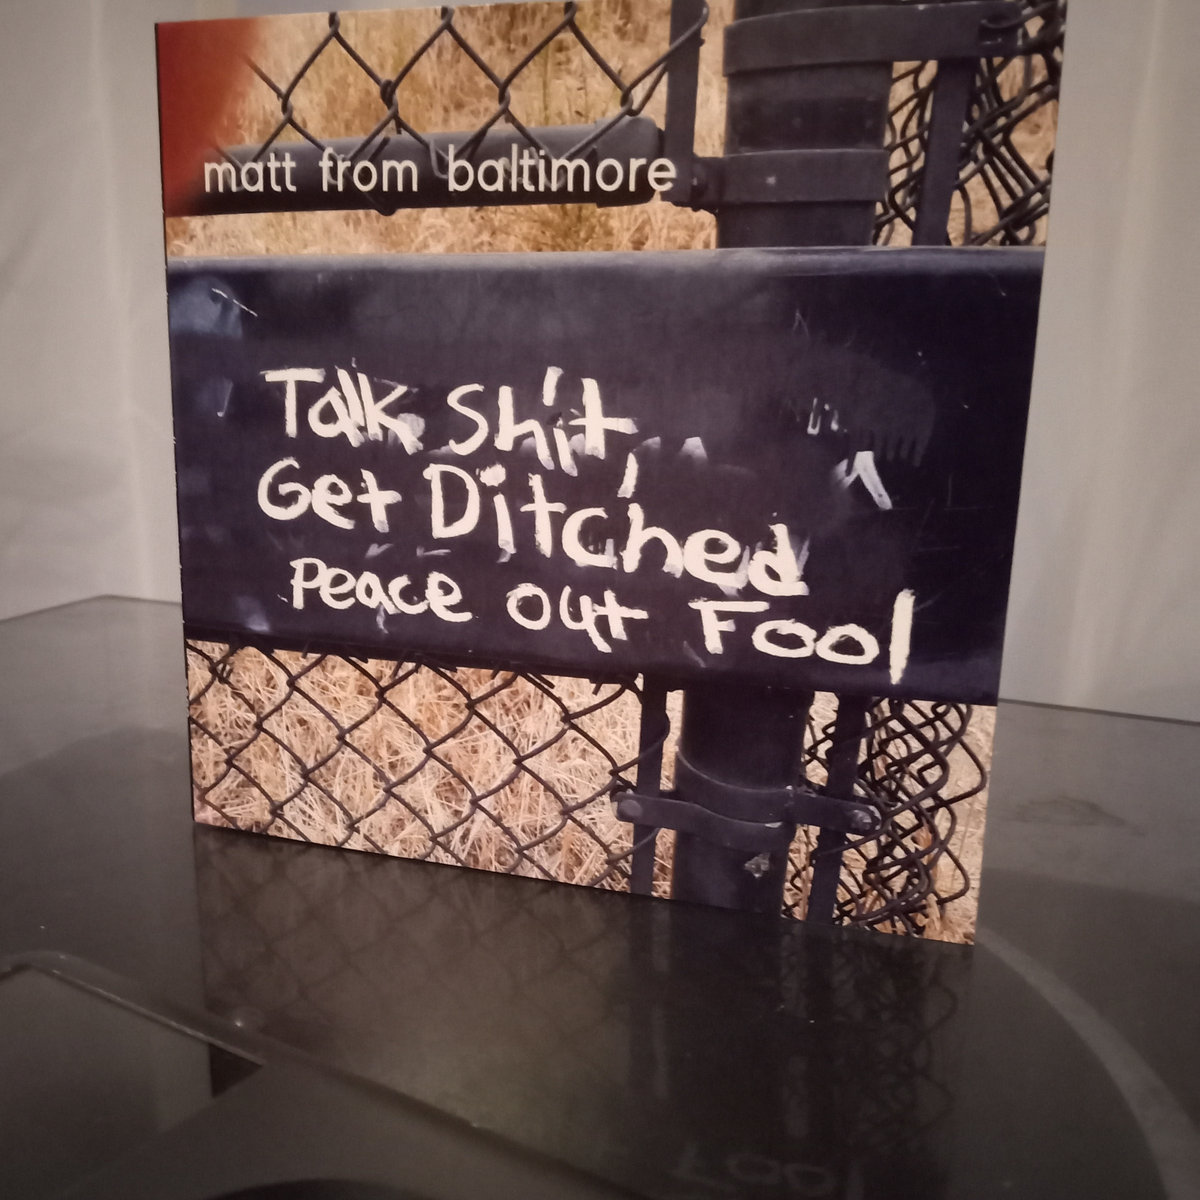 matt from baltimore
Talk Shit,
Get Ditched
Peace Out Fool